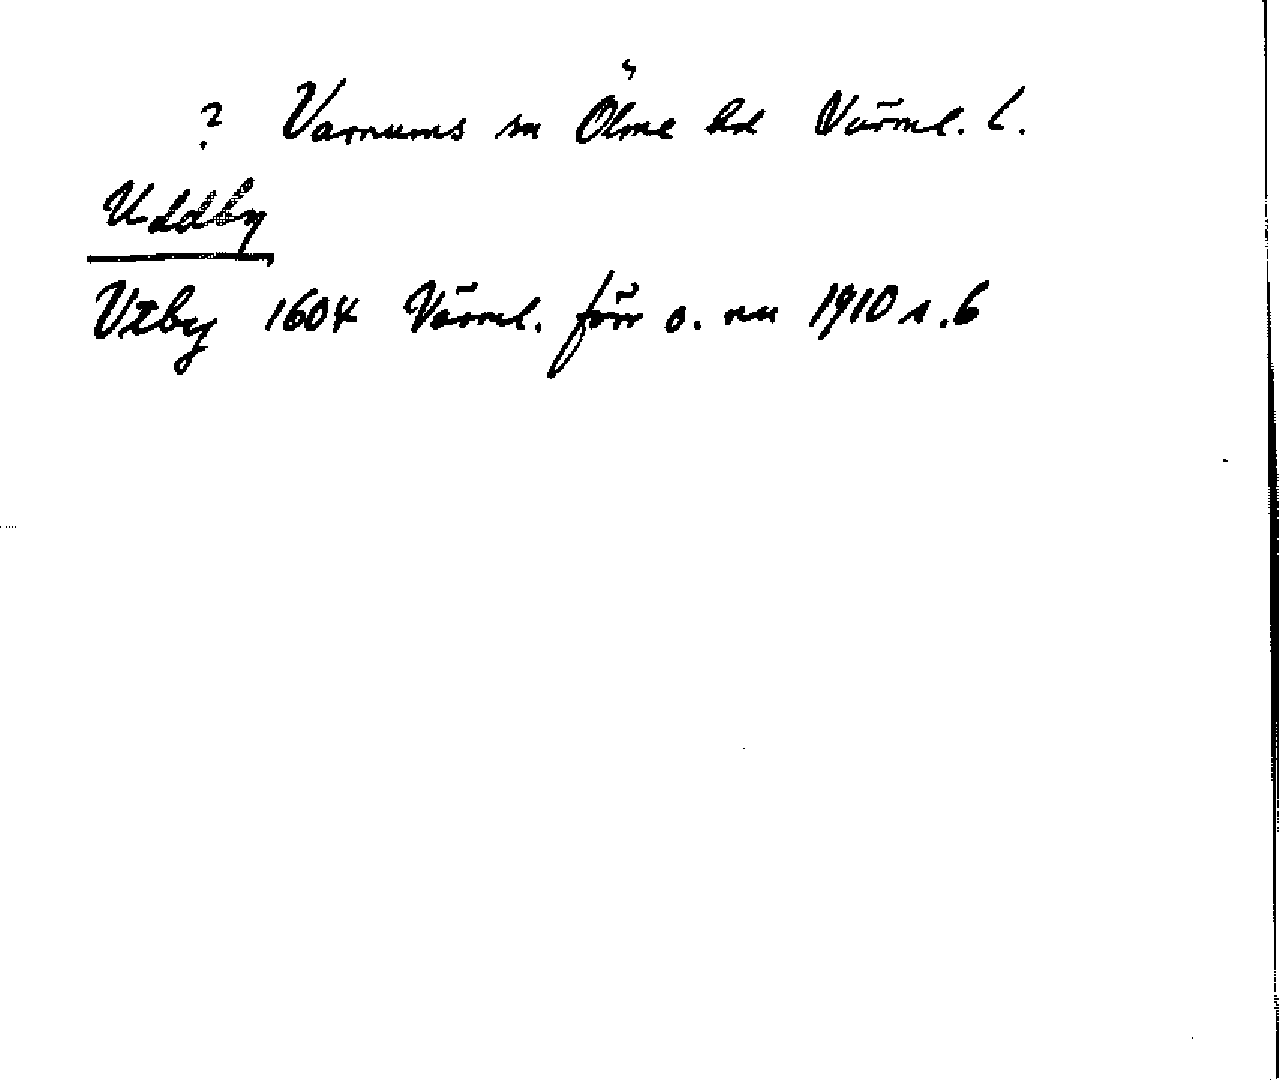 ? Varnums sn Ölme hd Värml. l.
Uddby
Utby 1604 Värml. förr o. nu 1910 s. 6